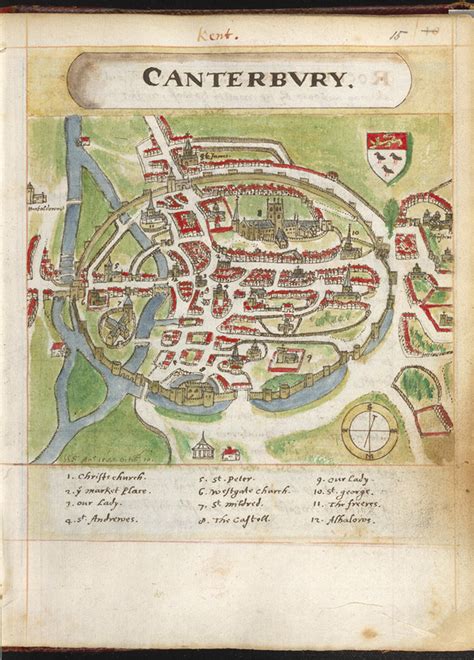 Kent.
15
CANTERBVRY.
1. Christs church.
2. yͤ market Place.
3. our Lady.
4. St. Andrewes.
5. St. Peter.
6. Westgate church.
7. St. mildred.
8. The Castell
9. our Lady.
10. St. george.
11. The freeres.
12. Alhalowes.